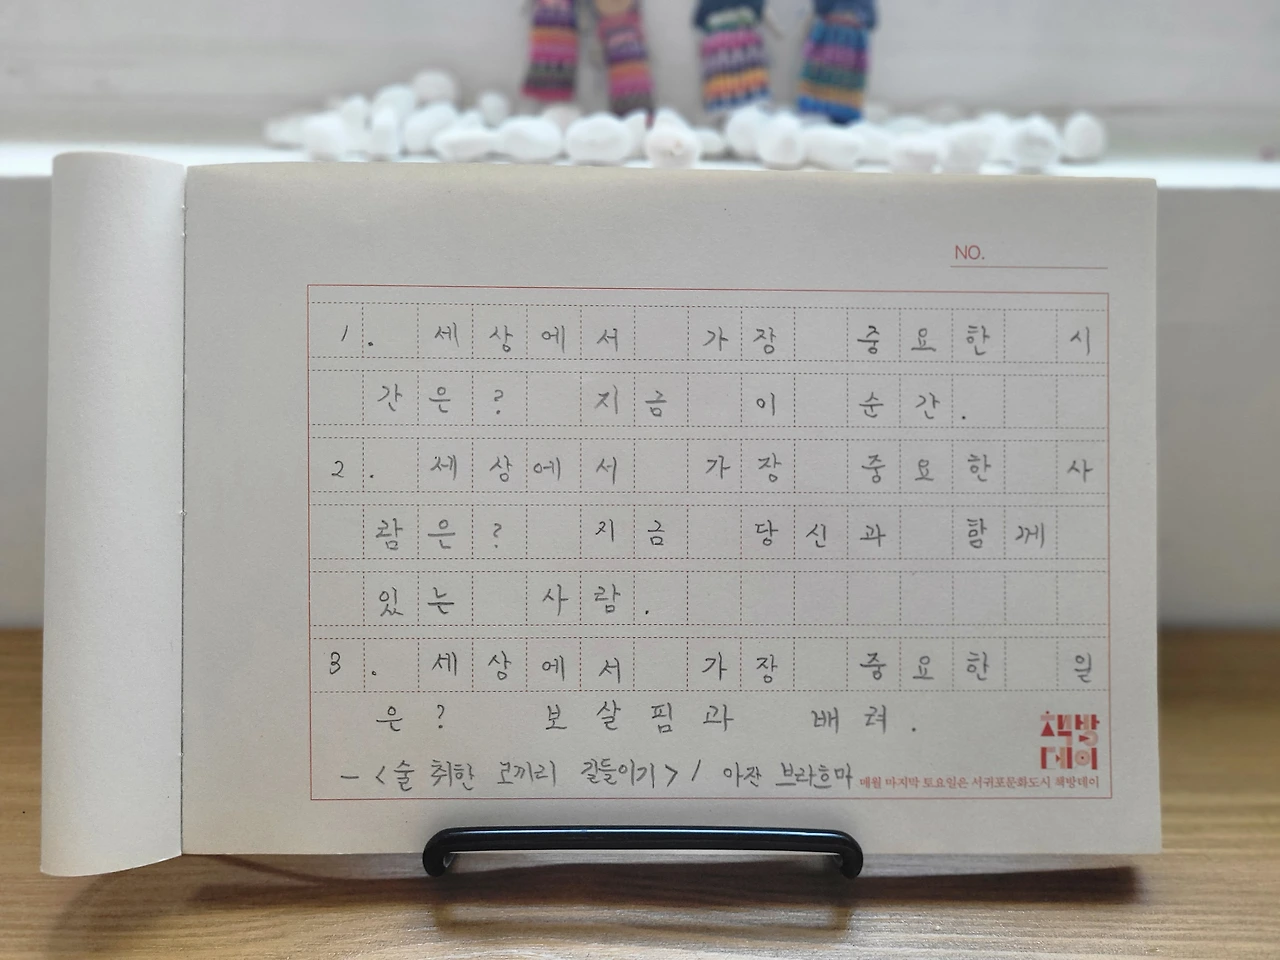 NO.
1. 세상에서 가장 중요한 시
간은? 지금 이 순간.
2. 세상에서 가장 중요한 사
람은? 지금 당신과 함께
있는 사람.
3. 세상에서 가장 중요한 일
은? 보살핌과 배려.
책방
데이
- <술 취한 코끼리 길들이기> / 아잔 브라흐마
매월 마지막 토요일은 서귀포문화도시 책방데이